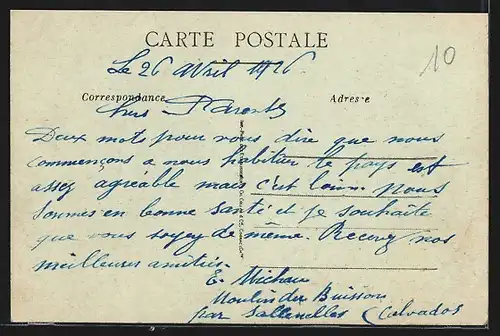 CARTE POSTALE
10
Le 26 avril 1926
Correspondance Adresse
Chers Parents
Deux mots pour vous dire que nous
commençons a nous habituer le pays est
assez agréable mais c'est loin Nous
sommes en bonne santé et je souhaite
que vous soyez de même. Recevez nos
meilleures amitiés
E. Michau
Moulin du Buisson
par Sallenelles Calvados